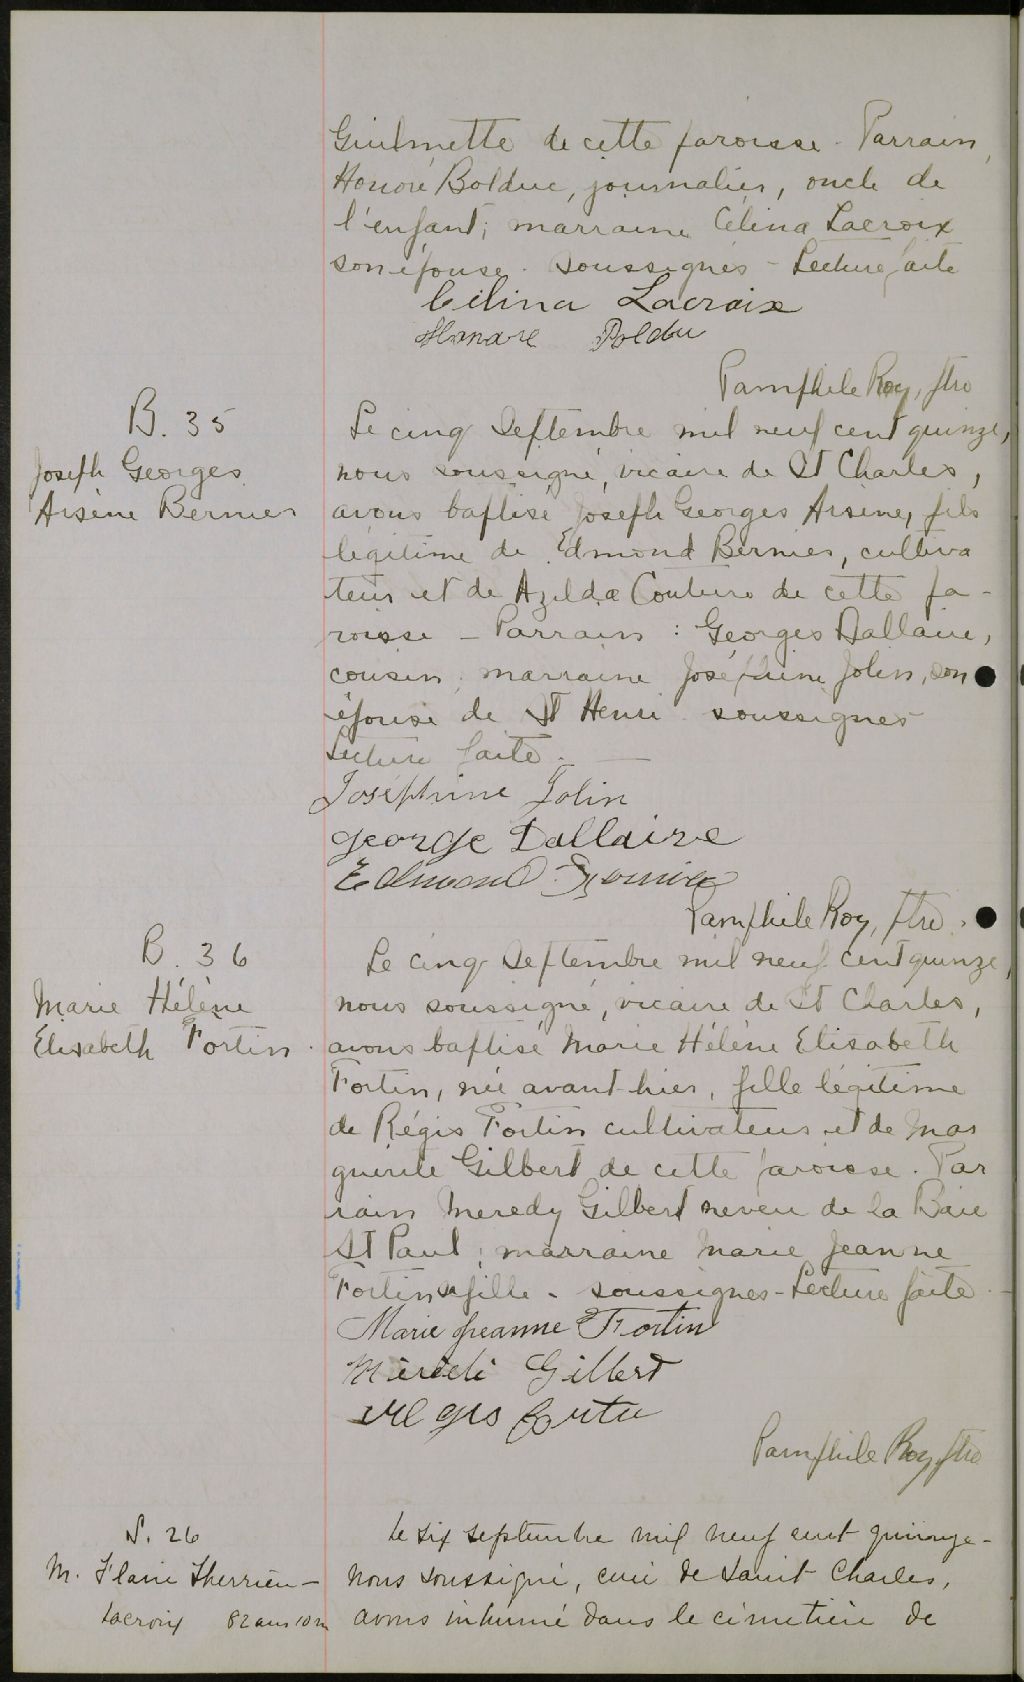 Guilmette de cette paroisse. Parrain,
Honoré Bolduc, journalier, oncle de
l'enfant; marraine Célina Lacroix
son épouse. soussignés - Lecture faite
Célina Lacroix
Honoré Boldu
Pamphile Roy, ptre
B. 35
Joseph Georges
Arsène Bernier
Le cinq Septembre mil neuf cent quinze,
nous soussigné, vicaire de St Charles,
avons baptisé Joseph Georges Arsène, fils
légitime de Edmond Bernier, cultiva
teur et de Azilda Couture de cette pa-
roisse - Parrain : Georges Dallaire,
cousin; marraine Joséphine Jolin, son
épouse de St Henri soussignés
Lecture faite. —
Joséphine Jolin
George Dallaire
Edmond Bernier
Pamphile Roy, ptre.
B. 36
Marie Hélène
Elisabeth Fortin.
Le cinq Septembre mil neuf cent quinze,
nous soussigné, vicaire de St Charles,
avons baptisé Marie Hélène Elisabeth
Fortin, née avant-hier, fille légitime
de Régis Fortin cultivateur et de Mar
guerite Gilbert de cette paroisse. Par
rain Meredy Gilbert neveu de la Baie
St Paul; marraine Marie Jeanne
Fortin sa fille. soussignés - Lecture faite -
Marie Jeanne Fortin
Gilbert
Régis Fortin
Pamphile Roy, ptre
S. 26
M. Flavie Therrien -
Lacroix 82 ans 10 m
Le six septembre mil neuf cent quinze -
nous soussigné, curé de Saint Charles,
avons inhumé dans le cimetière de